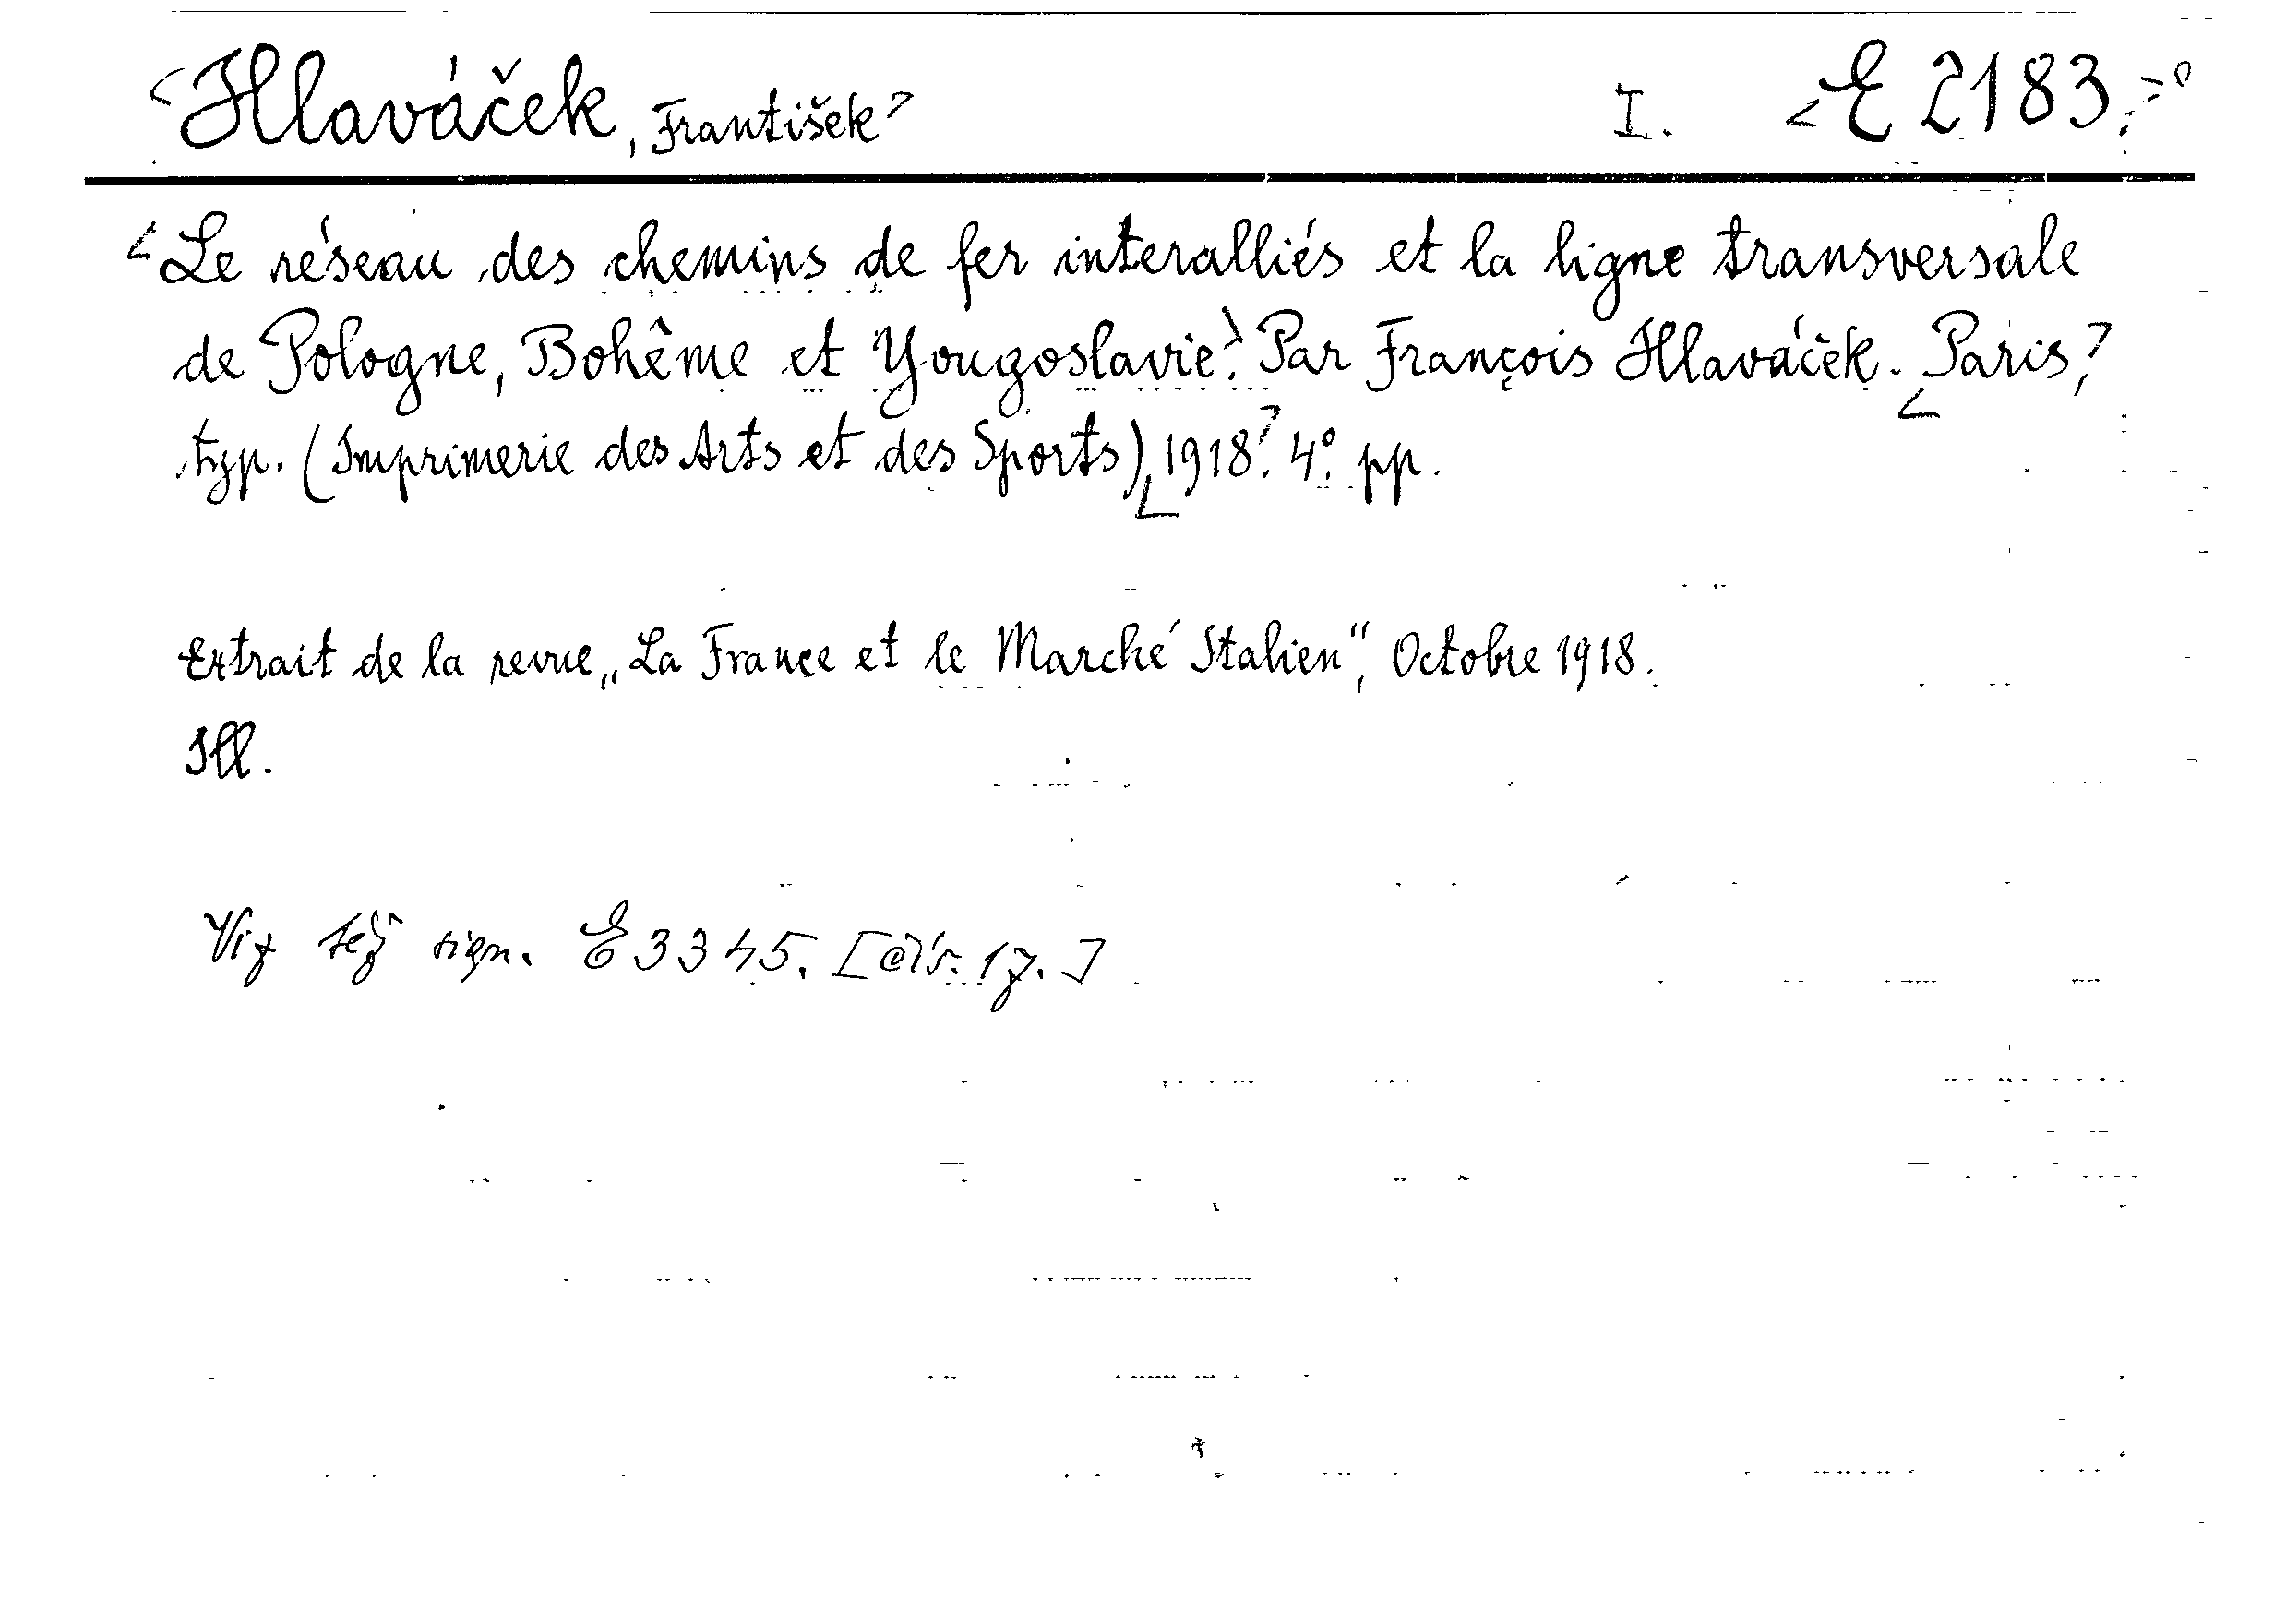 Hlaváček, František I. E 2183.
Le réseau des chemins de fer interalliés et la ligne transversale
de Pologne, Bohême et Yougoslavie. Par François Hlaváček. Paris,
typ. (Imprimerie des Arts et des Sports), 1918. 4° pp.
Extrait de la revue „La France et le Marché Italien", Octobre 1918.
Ill.
Viz též sign. E 3345. [čís. 17.]